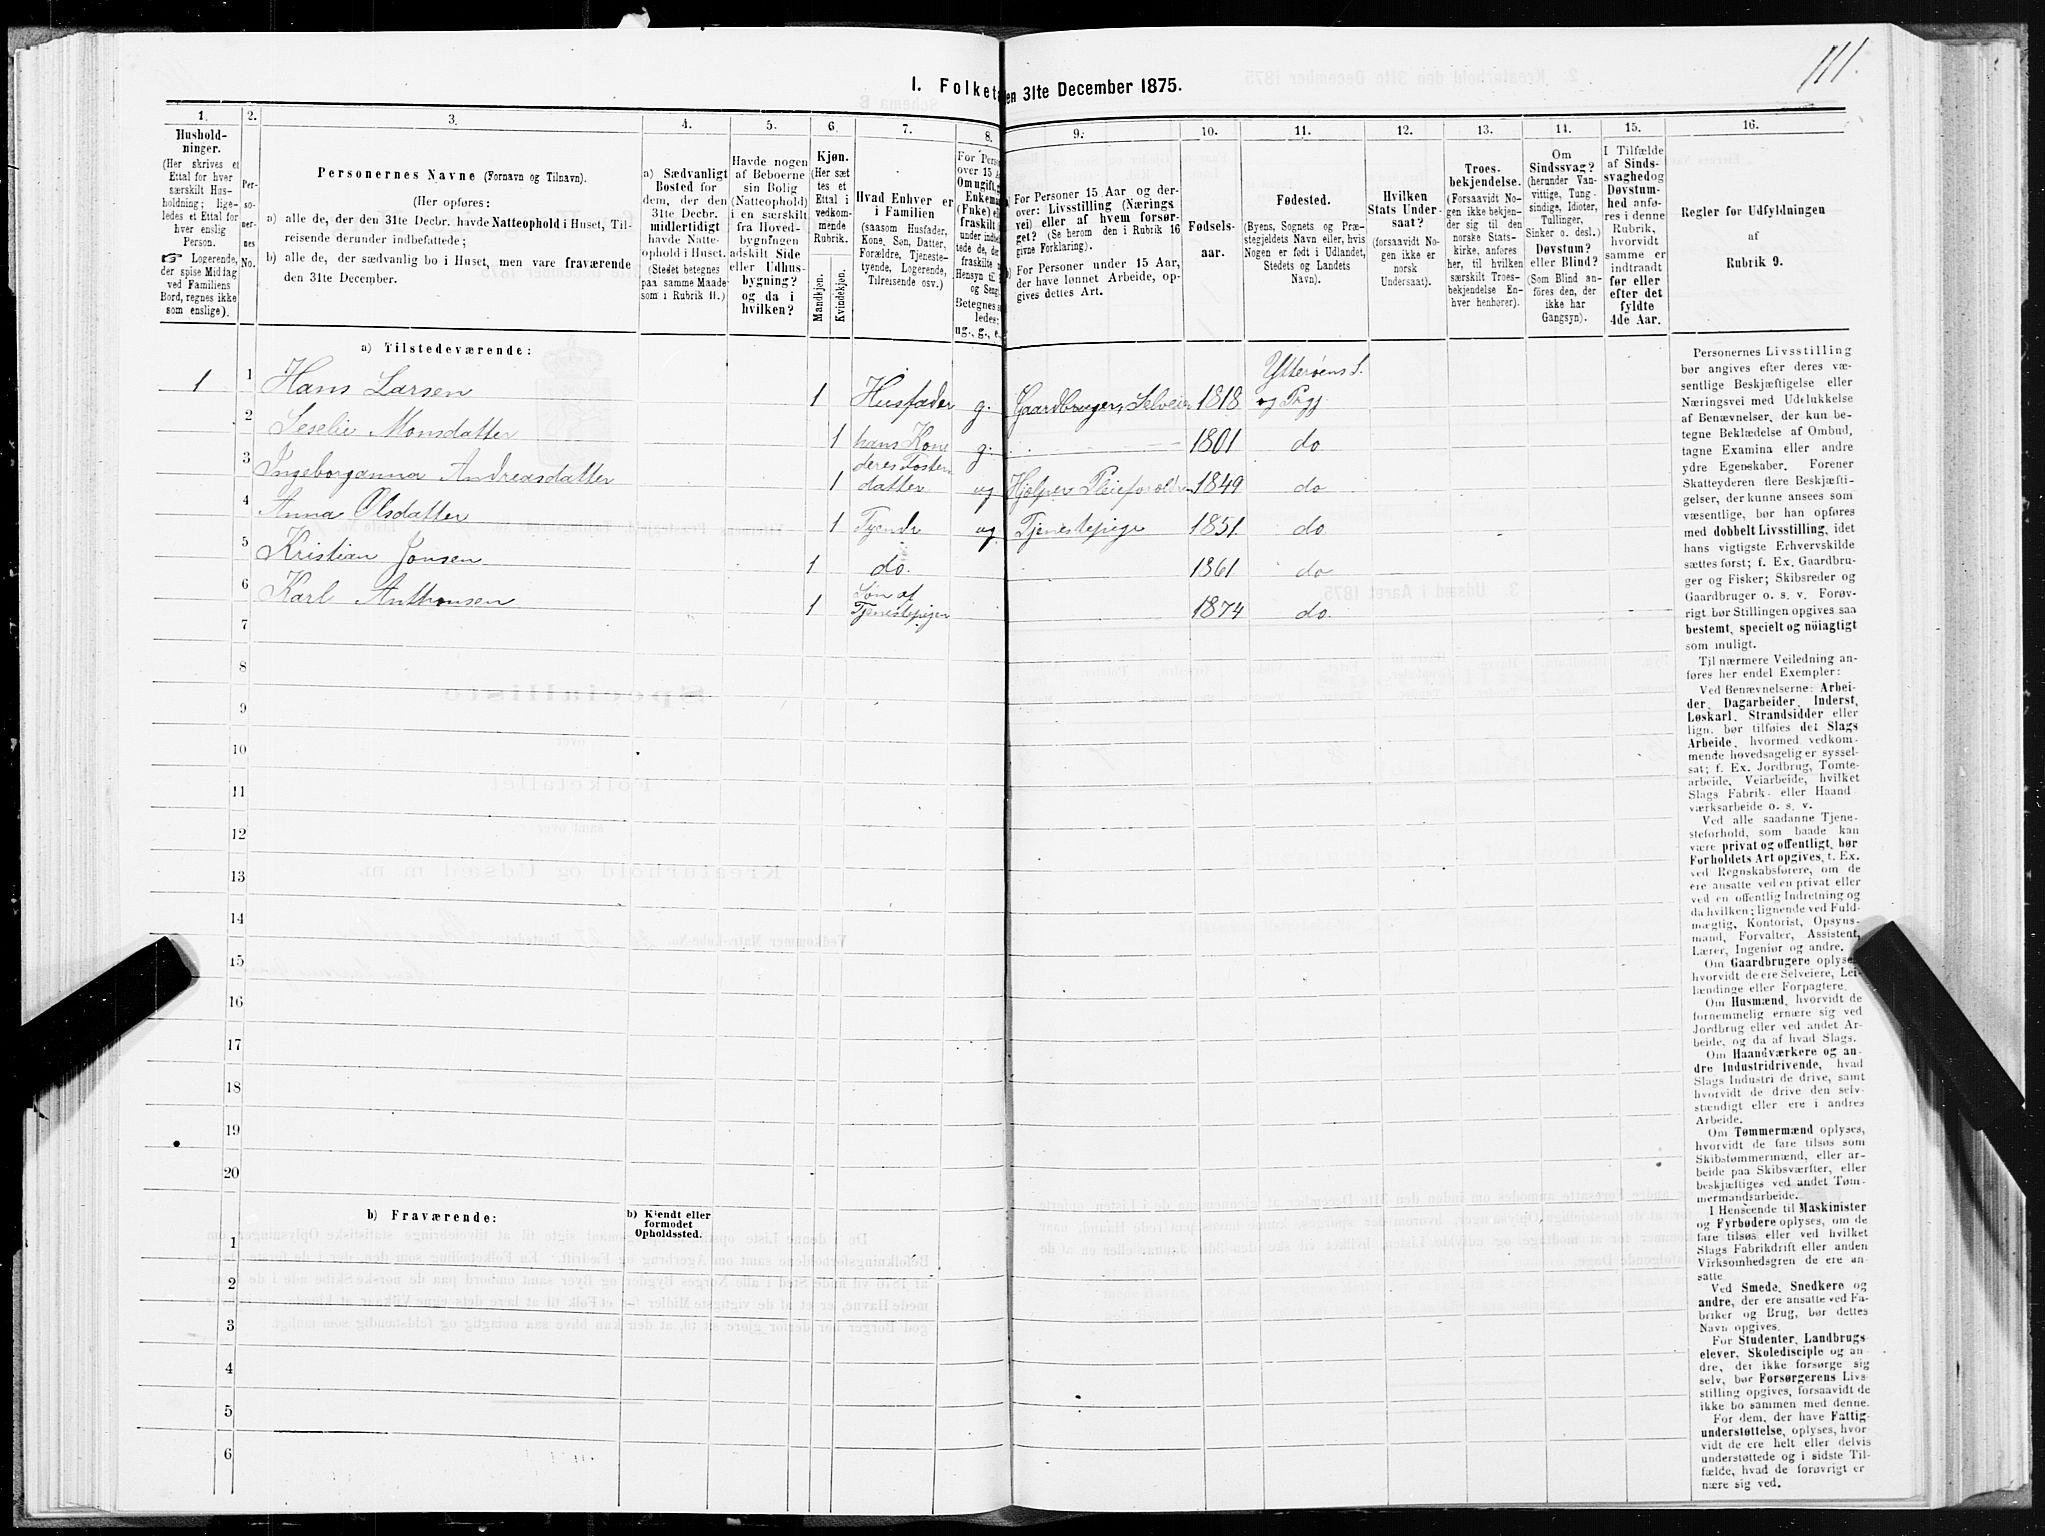 111.
I. Folketa en 31te December 1875.
1. 2. 3. 4. 5. 6. 7. 8. 9. 10. 11. 12. 13. 14. 15. 16.
Hushold-
ninger.
(Her skrives et
Ettal for hver
særskilt Hus-
holdning; lige-
ledes et Ettal for
hver enslig
Person.
☞ Logerende,
der spise Middag
ved Familiens
Bord, regnes ikke
som enslige).
Per-
so-
ner-
nes
No.
Personernes Navne (Fornavn og Tilnavn).
(Her opføres:
a) alle de, der den 31te Decbr. havde Natteophold i Huset, Til-
reisende derunder indbefattede;
b) alle de, der sædvanlig bo i Huset, men vare fraværende
den 31te December.
a) Sædvanligt
Bosted for
dem, der den
31te Decbr.
midlertidigt
havde Natte-
ophold i Huset.
(Stedet betegnes
paa samme Maade
som i Rubrik 11.)
Havde nogen
af Beboerne
sin Bolig
(Natteophold)
i en særskilt
fra Hoved-
bygningen
adskilt Side
eller Udhus-
bygning?
og da i
hvilken?
Kjøn.
(Her sæt
tes et
Ettal i
vedkom-
mende
Rubrik.
Mandkjøn.
Kvindekjøn.
Hvad Enhver er
i Familien
(saasom Husfader,
Kone, Søn, Datter,
Forældre, Tjeneste-
tyende, Logerende,
Tilreisende osv.)
For Perso
over 15 A
Om ugift, g
Enkema
(Fnke) el
fraskilt
under indbe
tede de, de
fraskilte
Hensyn til
og Seng
Betegnes s
ledes:
ug., g., e.
a) For Personer 15 Aar og der-
over: Livsstilling (Nærings
vei) eller af hvem forsør-
get? (Se herom den i Rubrik 16
givne Forklaring).
b) For Personer under 15 Aar,
der have lønnet Arbeide, op-
gives dettes Art.
Fødsels-
aar.
Fødested.
(Byens, Sognets og Præ-
stegjeldets Navn eller, hvis
Nogen er født i Udlandet,
Stedets og Landets
Navn).
Hvilken
Stats Under-
saat?
(forsaavidt No-
gen ikke er
norsk
Undersaat).
Troes-
bekjendelse.
(Forsaavidt No-
gen ikke bekjen-
der sig til den
norske Stats-
kirke, anføres
her, til hvilken
særskilt Troes-
bekjendelse En-
hver henhører).
Om
Sindssvag?
(herunder Van-
vittige, Tung-
sindige, Idioter,
Tullinger,
Sinker o. desl.)
Døvstum?
eller Blind?
(Som Blind an-
føres den, der
ikke har
Gangsyn).
I Tilfælde
af Sinds-
svaghed og
Døvstum-
hed anfø-
res i denne
Rubrik,
hvorvidt
samme er
indtraadt
før eller
efter det
fyldte
4de Aar.
Regler for Udfyldningen
af
Rubrik 9.
a) Tilstedeværende:
1 1 Hans Larsen 1 Husfader g. Gaardbruger, Selveier 1818 Ytterøens S. og Prgj
2 Seselie Monsdatter 1 hans Kone g. 1801 do
3 Ingeborganna Andreasdatter 1 deres Foster datter ug Hjelper Pleieforældre 1849 do
4 Anna Olsdatter 1 Tyende ug Tjenestepige 1851 do
5 Kristian Jonsen 1 do. 1861 do
6 Karl Anthonsen 1 Søn af Tjenestepigen 1874 do.
7
8
9
10
11
12
13
14
15
16
17
18
19
20
b) Fraværende:
b) Kjendt eller
formodet
Opholdssted.
1
2
3
4
5
6
Personernes Livsstilling
bør angives efter deres væ-
sentlige Beskjæftigelse eller
Næringsvei med Udelukkelse
af Benævnelser, der kun be-
tegne Beklædelse af Ombud,
tagne Examina eller andre
ydre Egenskaber. Forener
Skatteyderen flere Beskjæfti-
gelser, der kunne ansees som
væsentlige, bør han opføres
med dobbelt Livsstilling, idet
hans vigtigste Erhvervskilde
sættes først; f. Ex. Gaardbru-
ger og Fisker; Skibsreder og
Gaardbruger o. s. v. Forøv-
rigt bør Stillingen opgives saa
bestemt, specielt og nøiagtigt
som muligt.
Til nærmere Veiledning an-
føres her endel Exempler:
Ved Benævnelserne: Arbei-
der, Dagarbeider, Inderst,
Løskarl, Strandsidder eller
lign. bør tilføies det Slags
Arbeide, hvormed vedkom-
mende hovedsagelig er syssel-
sat; f. Ex. Jordbrug, Tomte-
arbeide, Veiarbeide, hvilket
Slags Fabrik- eller Haand-
værksarbeide o. s. v.
Ved alle saadanne Tjene-
steforhold, som baade kan
være privat og offentligt, bør
Forholdets Art opgives, t. Ex.
ved Regnskabsførere, om de
ere ansatte ved en privat eller
ved en offentlig Indretning og
da hvilken; lignende ved Fuld-
mægtig, Kontorist, Opsyns-
mand, Forvalter, Assistent,
Lærer, Ingeniør og andre.
Om Gaardbrugere oplyses,
hvorvidt de ere Selveiere, Lei-
lændinge eller Forpagtere.
Om Husmænd, hvorvidt de
fornemmelig ernære sig ved
Jordbrug eller ved andet Ar-
beide, og da af hvad Slags.
Om Haandværkere og an-
dre Industridrivende, hvad
Slags Industri de drive, samt
hvorvidt de drive den selv-
stændigt eller ere i andres
Arbeide.
Om Tømmermænd oplyses,
hvorvidt de fare tilsøs som
Skibstømmermænd, eller ar-
beide paa Skibsværfter, eller
beskjæftiges ved andet Tøm-
mermandsarbeide.
I Henseende til Maskinister
og Fyrbødere oplyses, om de
fare tilsøs eller ved hvilket
Slags Fabrikdrift eller anden
Virksomhedsgren de ere an-
satte.
Ved Smede, Snedkere og
andre, der ere ansatte ved Fa-
briker og Brug, bør dettes
Navn opgives.
For Studenter, Landbrugs-
elever, Skoledisciple og an-
dre, der ikke forsørge sig
selv, bør Forsørgerens Livs-
stilling opgives, forsaavidt de
ikke bo sammen med denne.
For dem, der have Fattig-
understøttelse, oplyses, hvor-
vidt de ere helt eller delvis
understøttede og i sidste Til-
fælde, hvad de forøvrigt er
nære sig ved.